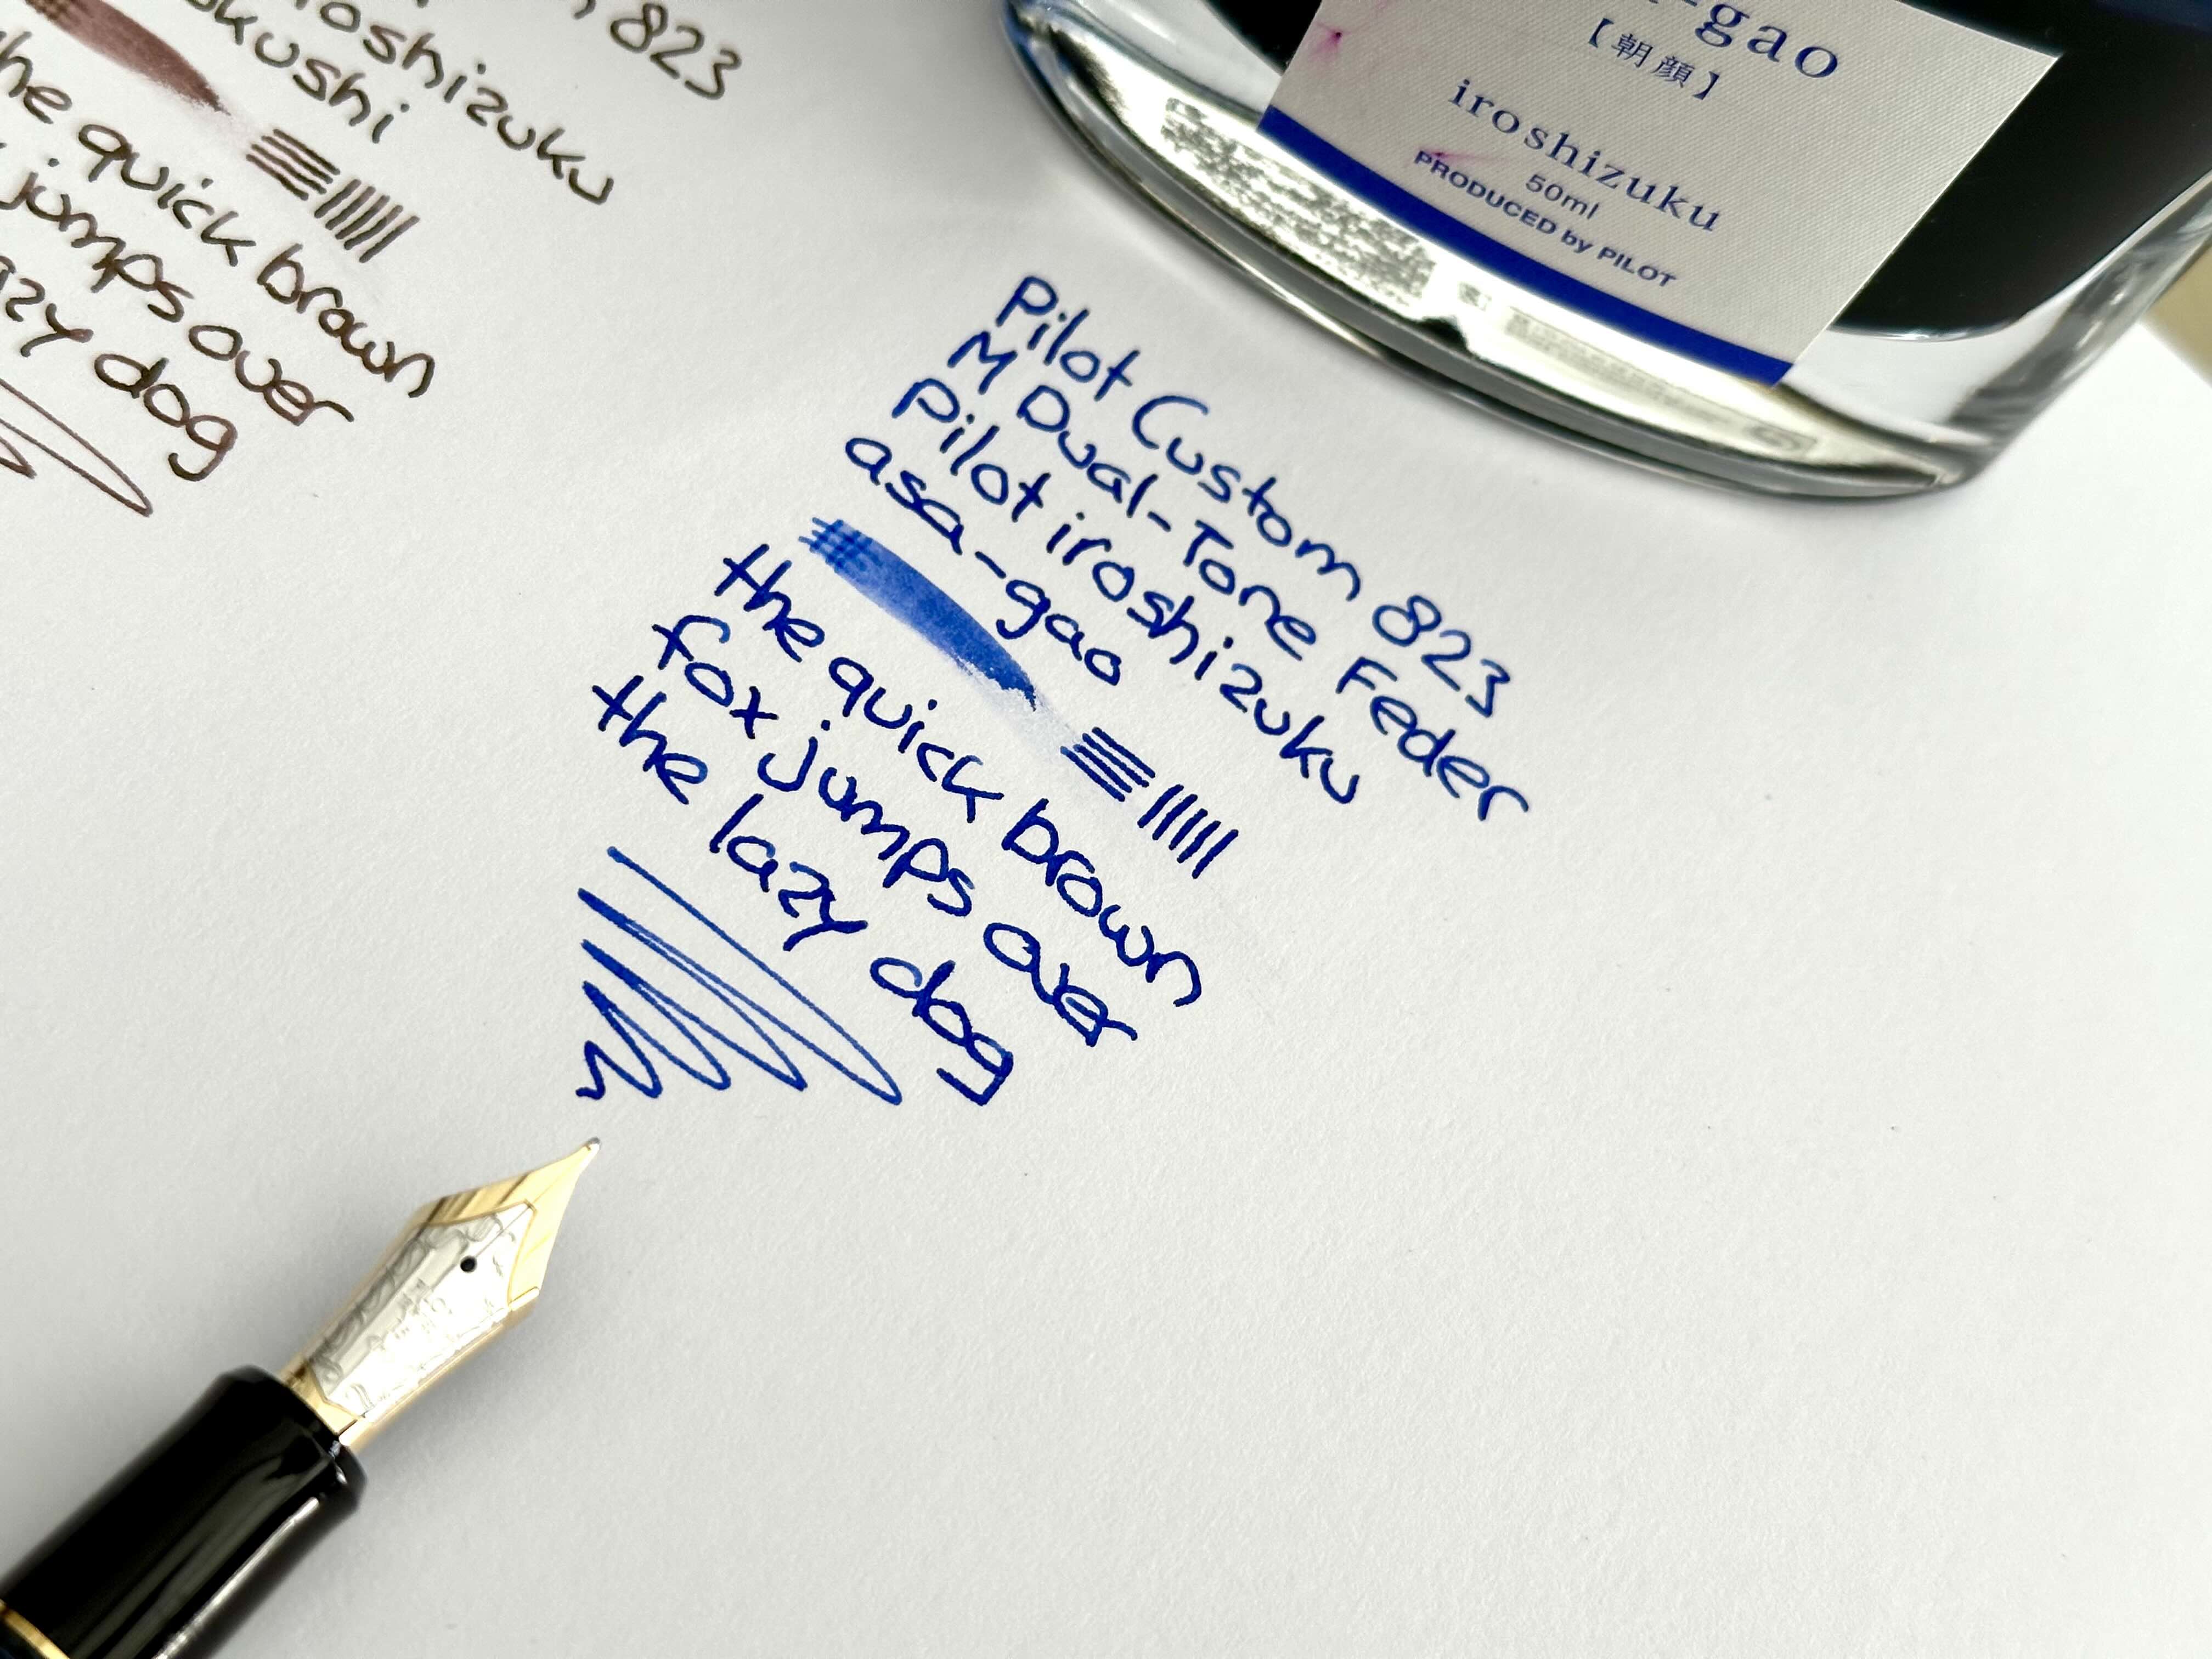 823
iroshizuku
the quick brown
jumps over
lazy dog
gao
【朝顔】
iroshizuku
50ml
PRODUCED by PILOT
Pilot Custom 823
M Dual-Tone Feder
Pilot iroshizuku
asa-gao
the quick brown
fox jumps over
the lazy dog